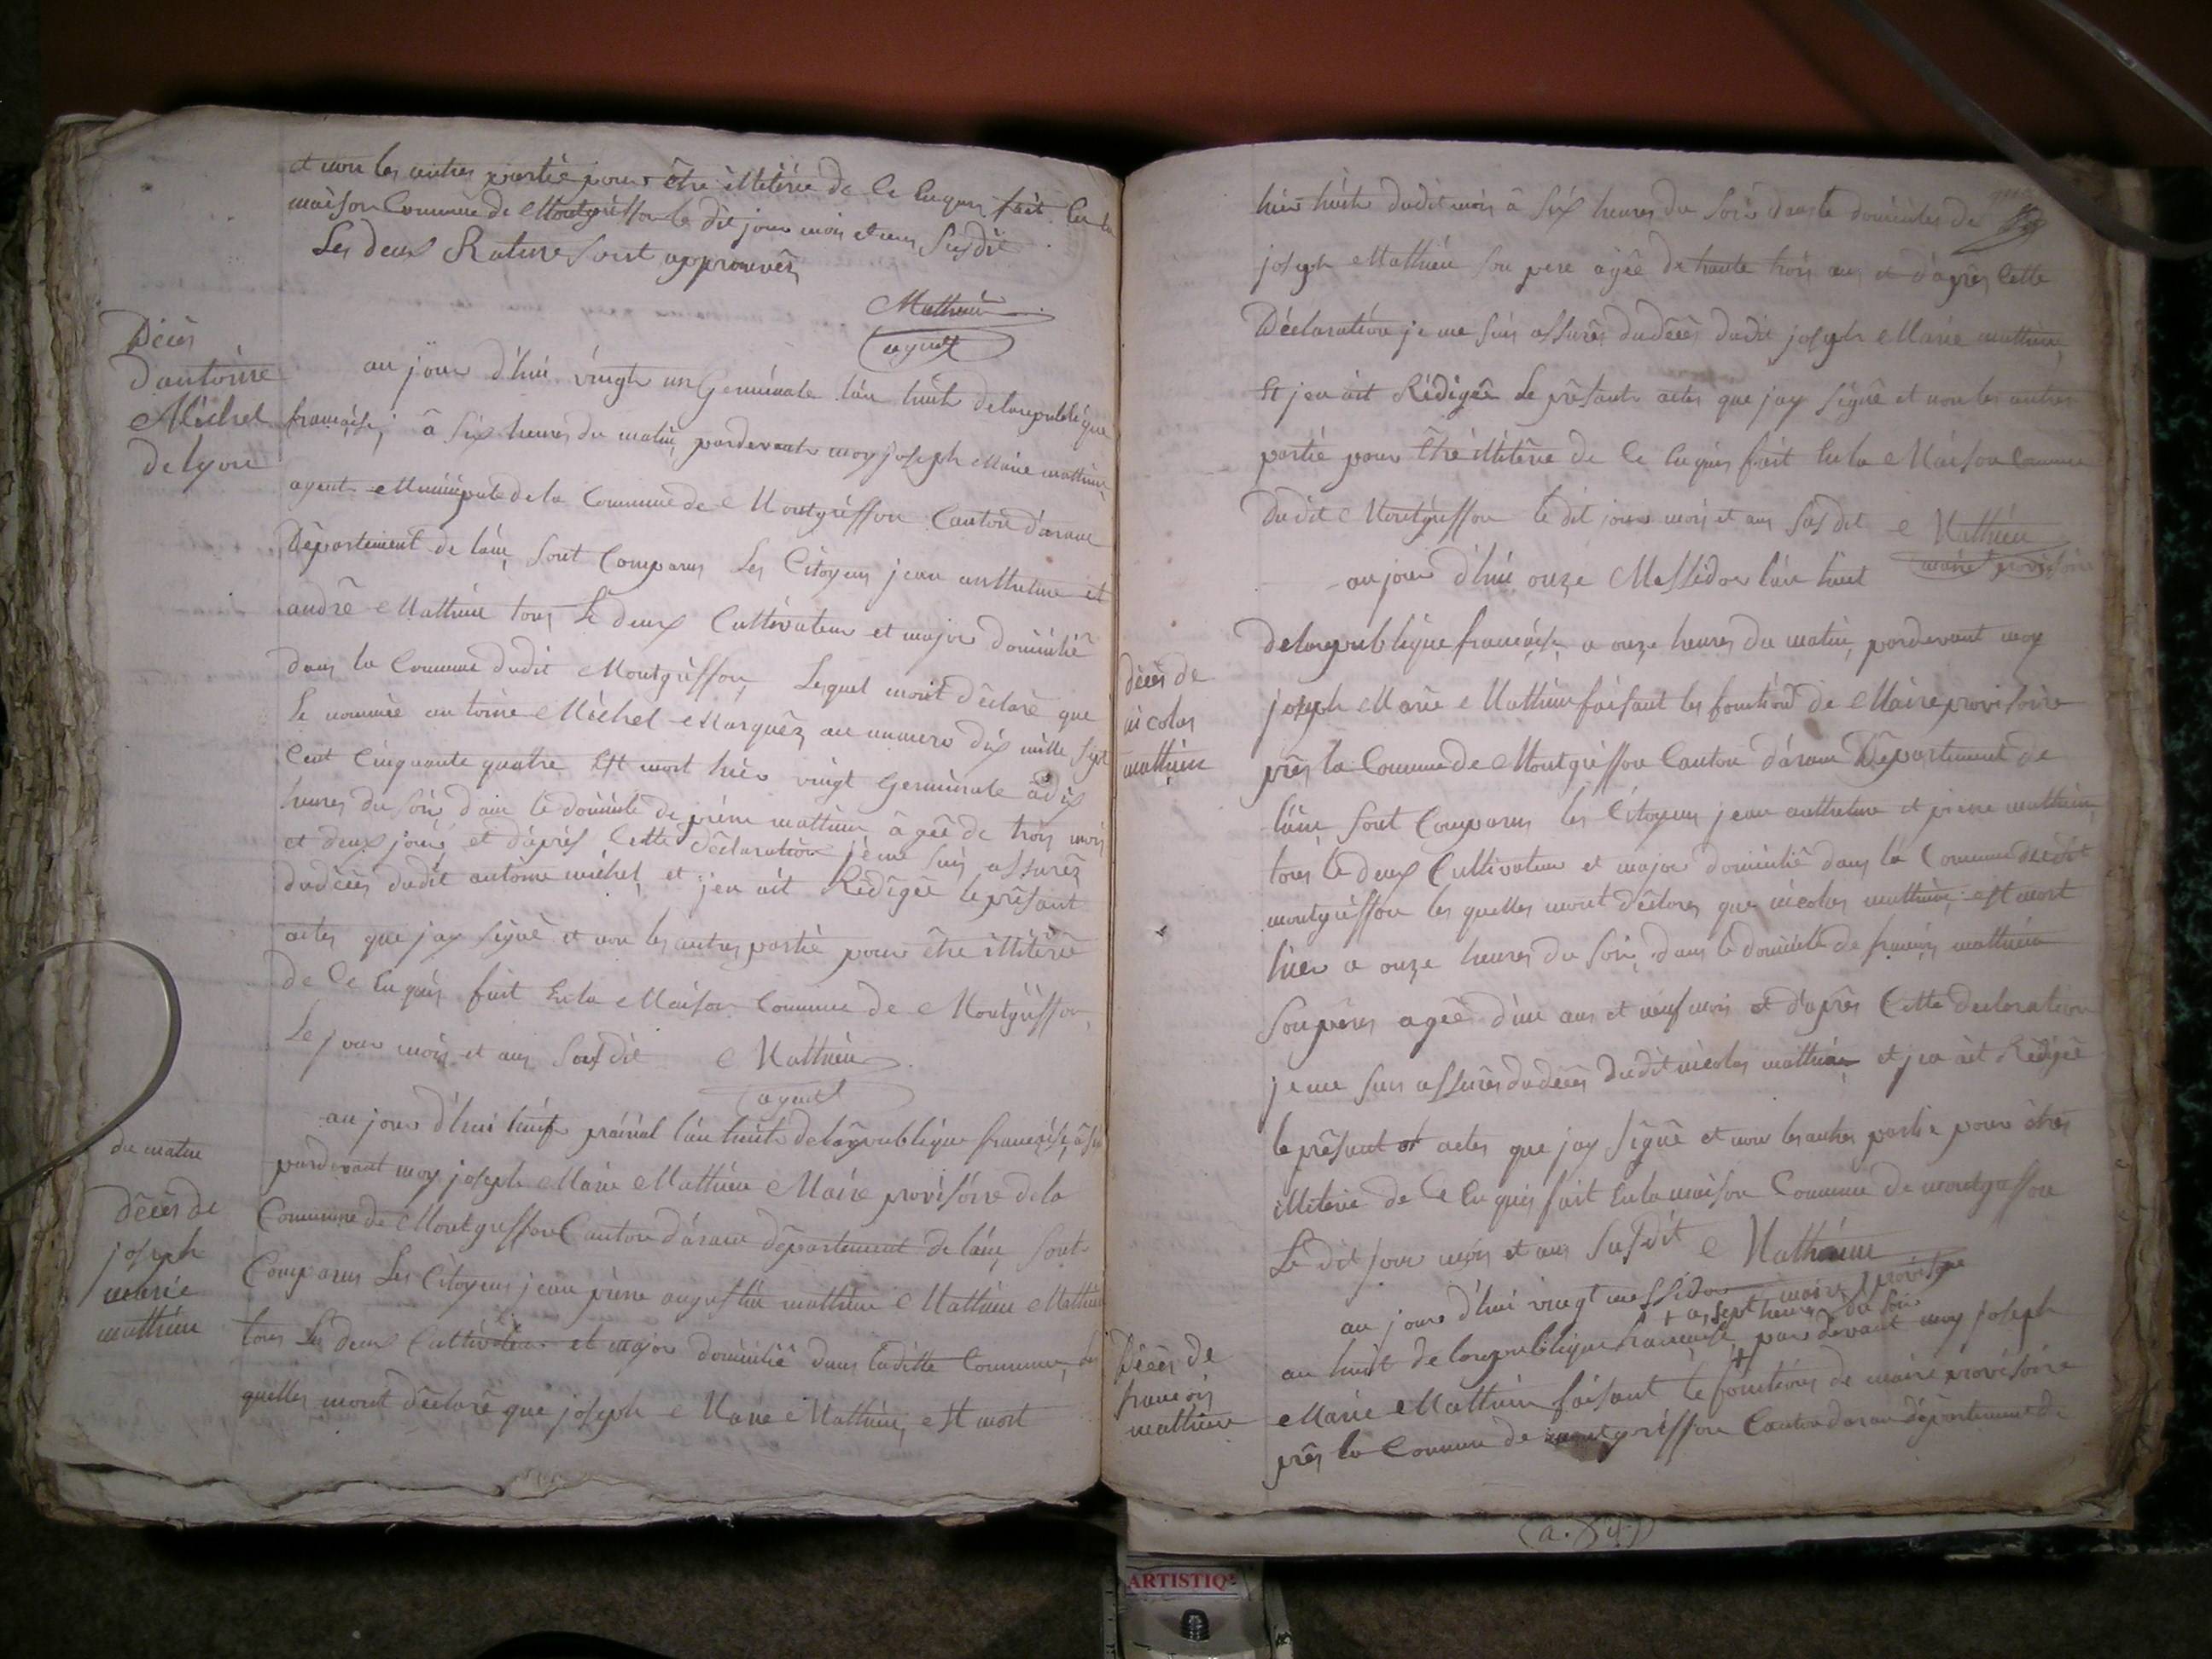 et non les autres partie pour être illitérée de ce enquis fait en la
maison Commune de Montgriffon le dit jour mois et an Susdit
Les deux Rature sont approuvés
Mathieu
agent
Décès
d'antoine
Michel
de lyon
au jour d'hui vingt un Germinale l'an huit de la republique
française, à six heures du matin, pardevant moy joseph Marie mathieu
agent Municipale de la Commune de Montgriffon Canton d'arane
Département de l'ain, sont Comparus Les Citoyens jean anthelme et
andrê Mathieu tous le deux Cultivateur et major domicilié
dans la Commune dudit Montgriffon, Lesquel mont déclaré que
le nommée antoine Michel Marquéz au numero dix mille sept
Cent Cinquante quatre Est mort hier vingt Germinale à dix
heures du soir dans le domicile de piere mathieu âgée de trois mois
et deux jours et d'aprés Cette Déclaration je me suis assurés
du décès dudit antoine michel, et j'en ait Rédigée le présant
actes que jay signé et non les autres partie pour être illitérée
de Ce Enquis fait En la Maison Commune de Montgriffon,
Le jour mois et an Susdit Mathieu
agent
au jour d'hui huit prairial l'an huit de la republique française, à six
du matin
pardevant moy joseph Marie Mathieu Maire provisoire de la
décès de
joseph
marie
mathieu
Commune de Montgriffon Canton d'arane département de l'ain, sont
Comparus Les Citoyens jean piere augustin mathieu Mathieu Mathieu
tous Les deux Cultivateur et major domicilié dans laditte Commune, les
quelles mont déclaré que joseph Marie Mathieu, Est mort
hier huit dudit mois à six heures du soir dans le domiciles de
joseph Mathieu son pere agée de trante trois ans et d'aprés Cette
Déclaration je me suis assurés du décès dudit joseph Marie mathieu,
Et jen ait Rédigée Le présant actes que jay signé et non les autres
partié pour Etré illitére de Ce Enquis fait En la Maison Commune
dudit Montgriffon le dit jour mois et an susdit Mathieu
maire provisoire
au jour d'hui onze Messidor l'an huit
de la republique française, a onze heures du matin, pardevant moy
décès de
nicolas
mathieu
joseph Marie Mathieu faisant les fonction de Maire provisoire
près la Commune de Montgriffon Canton d'arane Département de
l'ain, sont Comparus les Citoyens jean anthelme et pierre mathieu,
tous le deux Cultivateur et major domicilié dans la Commune dudit
montgriffon les quelles mont déclares que nicolas mathieu, est mort
hier a onze heures du soir, dans le domicile de françois mathieu
son pères agée d'un ans et neuf mois et d'aprés Cette declaration
je me suis assurés du décès dudit nicolas mathieu et jen ait Rédigée
le présant et actes que jay signé et non les autres partie pour étres
illiterée de Ce Enquis fait En la maison Commune de montgriffon
Le dit jour mois et an susdit Mathieu
maire provisoire
au jour d'hui vingt messidor
+ a sept heures du soir
an huit de la republique française + par devant moy joseph
Décès de
françois
mathieu
Marie Mathieu faisant le fonctions de maire provisoire
près la Commune de montgriffon Canton daran département de
ARTISTIQ